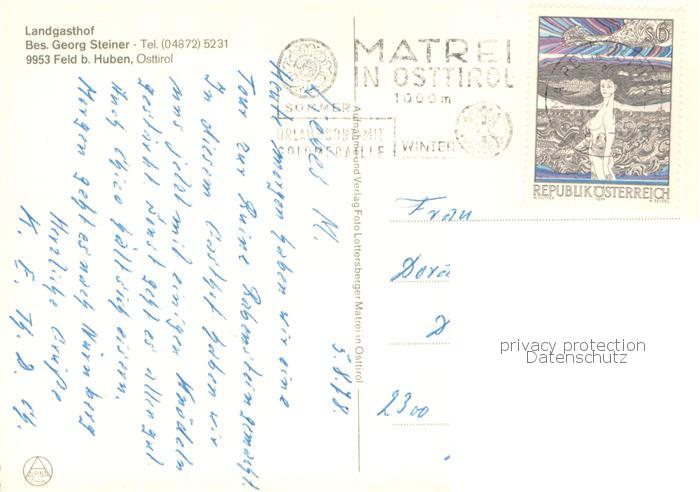 Landgasthof
Bes. Georg Steiner - Tel. (04872) 5231
9953 Feld b. Huben, Osttirol
SOMMER
URLAUBSORT MIT
GOLDMEDAILLE
MATREI
IN OSTTIROL
1000m
WINTER
S6
REPUBLIK ÖSTERREICH
Aufnahme und Verlag Foto Lottersberger Matrei in Osttirol
5.8.78.
Liebes M.
Heute morgen haben wir eine
Tour zur Ruine Rabenstein gemacht.
In diesem Gasthof haben wir
uns jetzt mit einigen Knödeln
gestärkt. Sonst geht es allen gut.
Auch hält sich eisern.
Morgen geht es nach Nürnberg
Herzliche Grüße
K. E. Th. D.
Frau
2300
privacy protection
Datenschutz